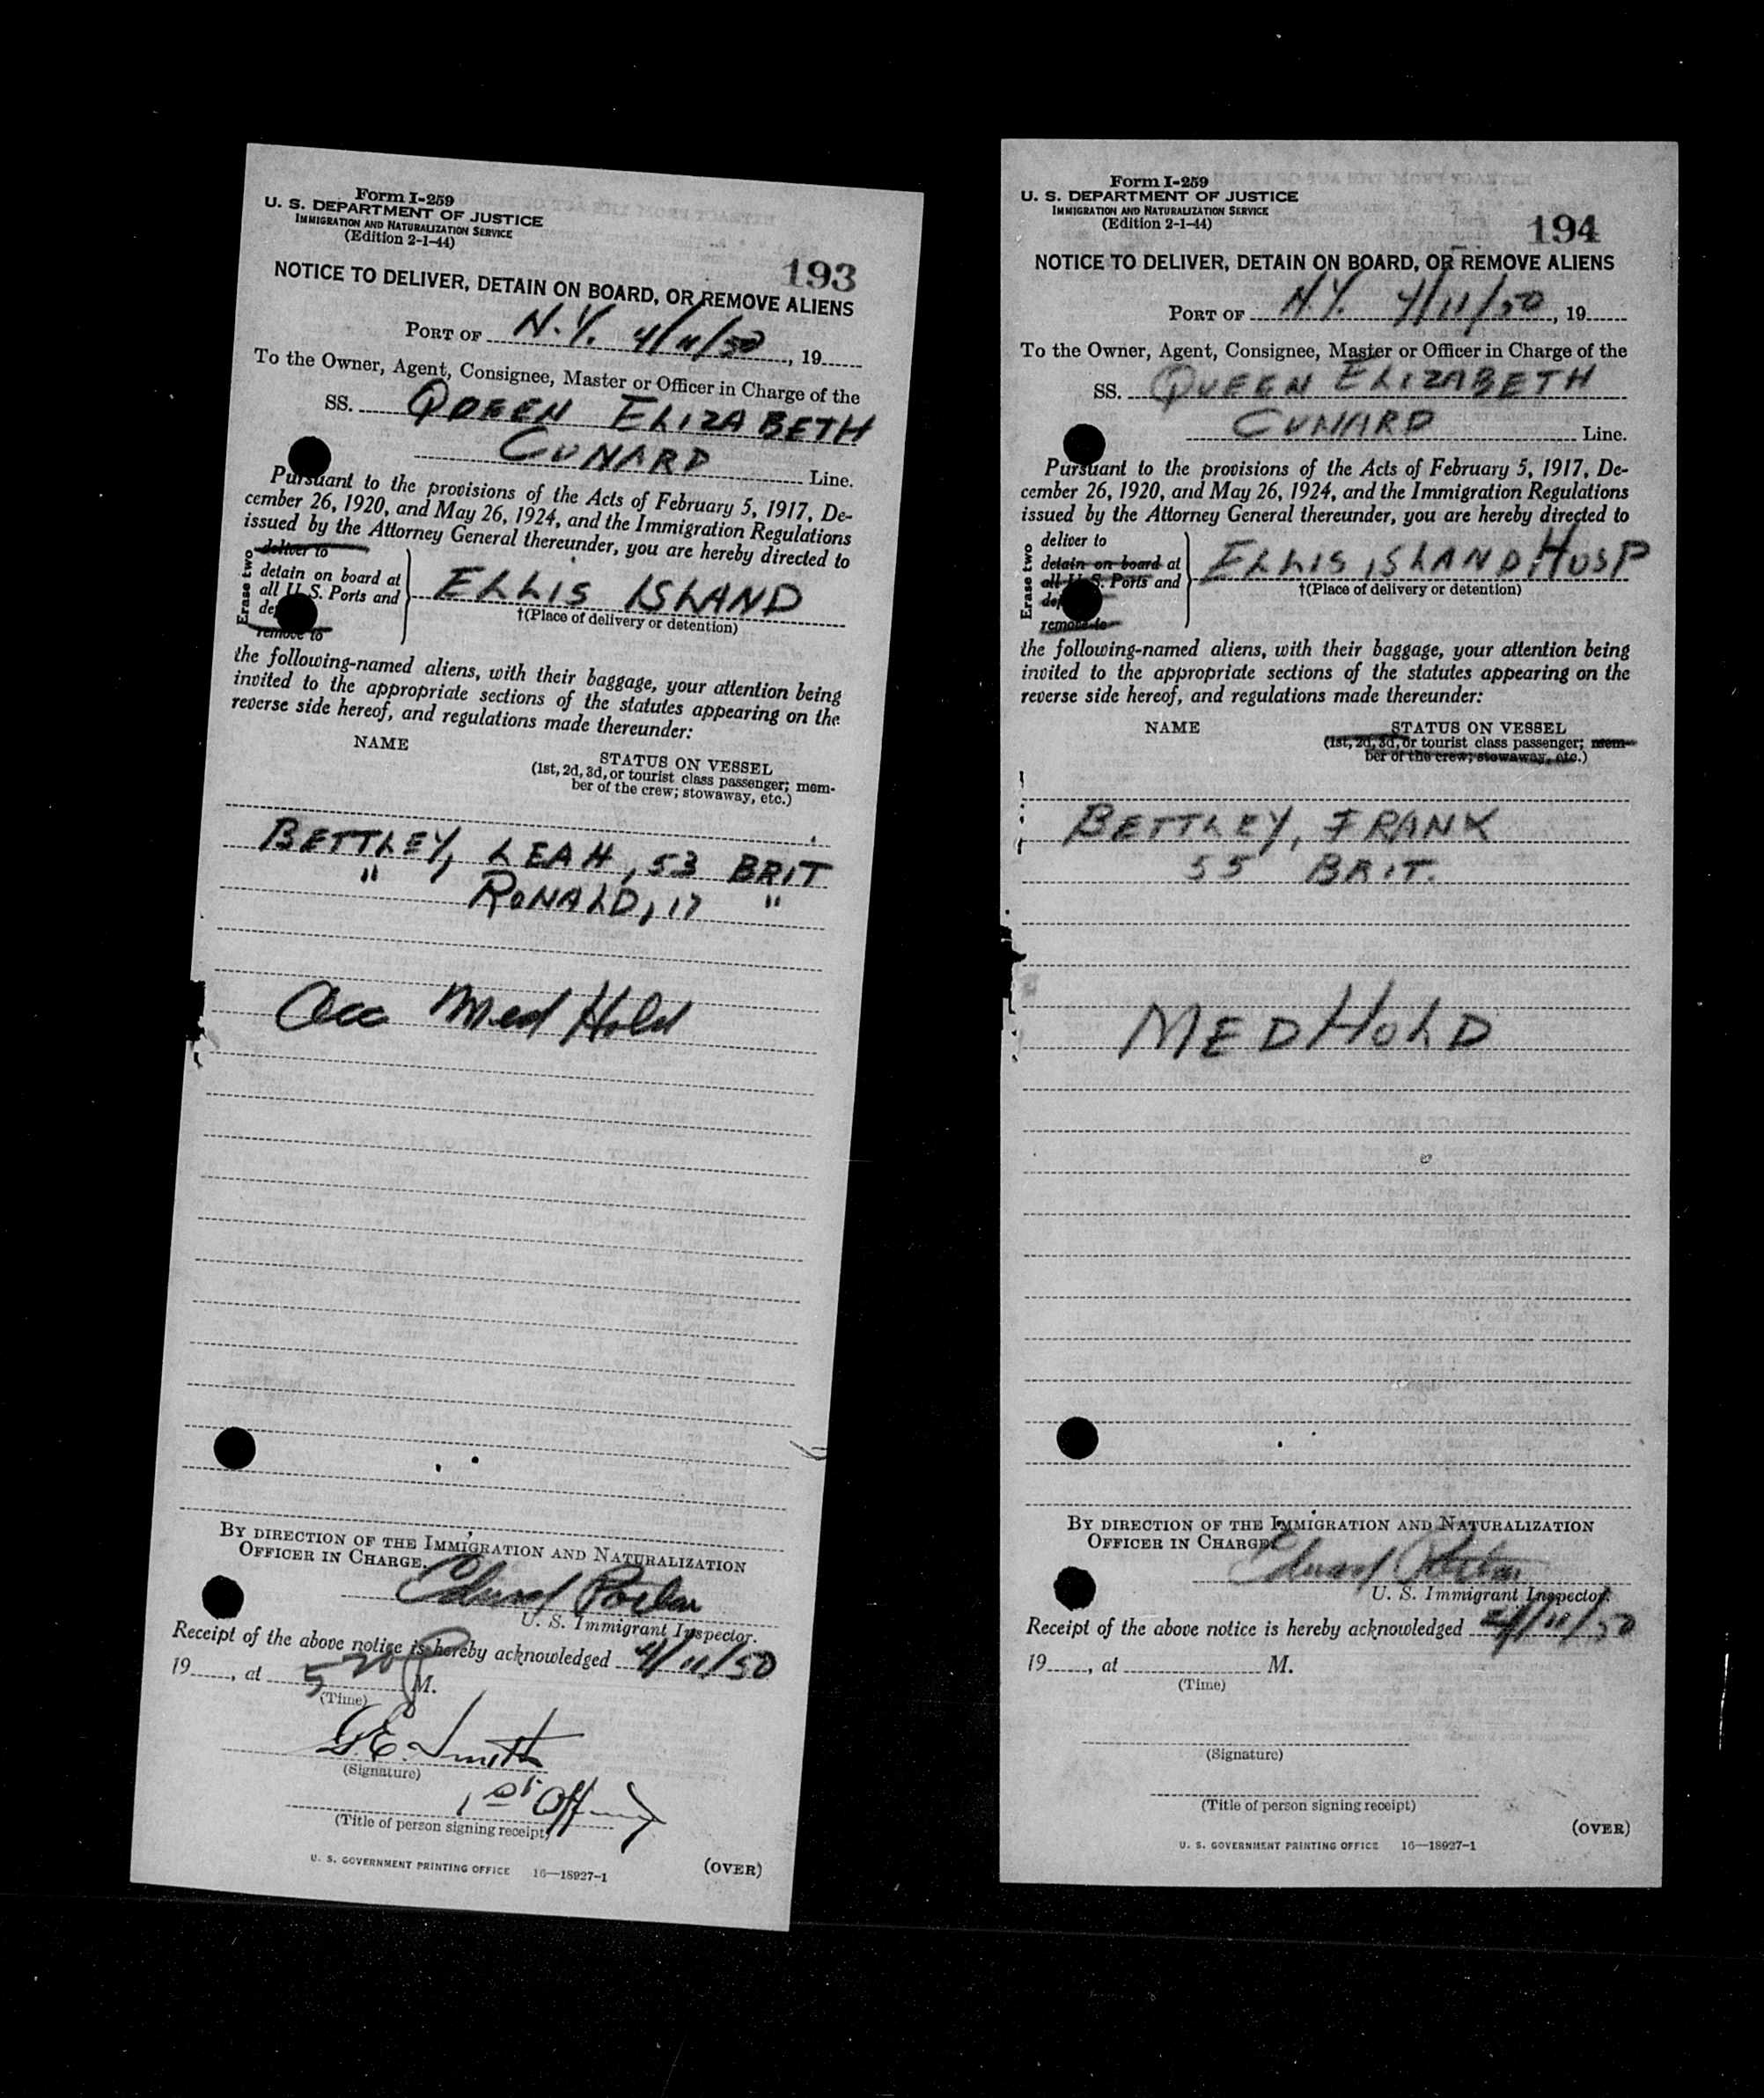 Form I-259
U. S. DEPARTMENT OF JUSTICE
IMMIGRATION AND NATURALIZATION SERVICE
(Edition 2-1-44)
193
NOTICE TO DELIVER, DETAIN ON BOARD, OR REMOVE ALIENS
PORT OF N.Y. 4/11/50, 19
To the Owner, Agent, Consignee, Master or Officer in Charge of the
SS. QUEEN ELIZABETH
CUNARD Line.
Pursuant to the provisions of the Acts of February 5, 1917, De-
cember 26, 1920, and May 26, 1924, and the Immigration Regulations
issued by the Attorney General thereunder, you are hereby directed to
Erase two
deliver to
detain on board at
all U. S. Ports and
remove to
ELLIS ISLAND
†(Place of delivery or detention)
the following-named aliens, with their baggage, your attention being
invited to the appropriate sections of the statutes appearing on the
reverse side hereof, and regulations made thereunder:
NAME
STATUS ON VESSEL
(1st, 2d, 3d, or tourist class passenger; mem-
ber of the crew; stowaway, etc.)
BETTLEY, LEAH, 53 BRIT
" RONALD, 17 "
Acc Med Hold
BY DIRECTION OF THE IMMIGRATION AND NATURALIZATION
OFFICER IN CHARGE.
Edward
U. S. Immigrant Inspector.
Receipt of the above notice is hereby acknowledged 4/11/50
19, at 5 20 P M.
(Time)
G.E. Smith
(Signature)
1st Off
(Title of person signing receipt)
U. S. GOVERNMENT PRINTING OFFICE 16—18927-1
(OVER)
Form I-259
U. S. DEPARTMENT OF JUSTICE
IMMIGRATION AND NATURALIZATION SERVICE
(Edition 2-1-44)
194
NOTICE TO DELIVER, DETAIN ON BOARD, OR REMOVE ALIENS
PORT OF N.Y. 4/11/50, 19
To the Owner, Agent, Consignee, Master or Officer in Charge of the
SS. QUEEN ELIZABETH
CUNARD Line.
Pursuant to the provisions of the Acts of February 5, 1917, De-
cember 26, 1920, and May 26, 1924, and the Immigration Regulations
issued by the Attorney General thereunder, you are hereby directed to
Erase two
deliver to
detain on board at
all U. S. Ports and
remove to
ELLIS ISLAND HOSP
†(Place of delivery or detention)
the following-named aliens, with their baggage, your attention being
invited to the appropriate sections of the statutes appearing on the
reverse side hereof, and regulations made thereunder:
NAME
STATUS ON VESSEL
(1st, 2d, 3d, or tourist class passenger; mem-
ber of the crew; stowaway, etc.)
BETTLEY, FRANK
55 BRIT.
MED HOLD
BY DIRECTION OF THE IMMIGRATION AND NATURALIZATION
OFFICER IN CHARGE.
Edward
U. S. Immigrant Inspector.
Receipt of the above notice is hereby acknowledged 4/11/50
19, at M.
(Time)
(Signature)
(Title of person signing receipt)
(OVER)
U. S. GOVERNMENT PRINTING OFFICE 16—18927-1